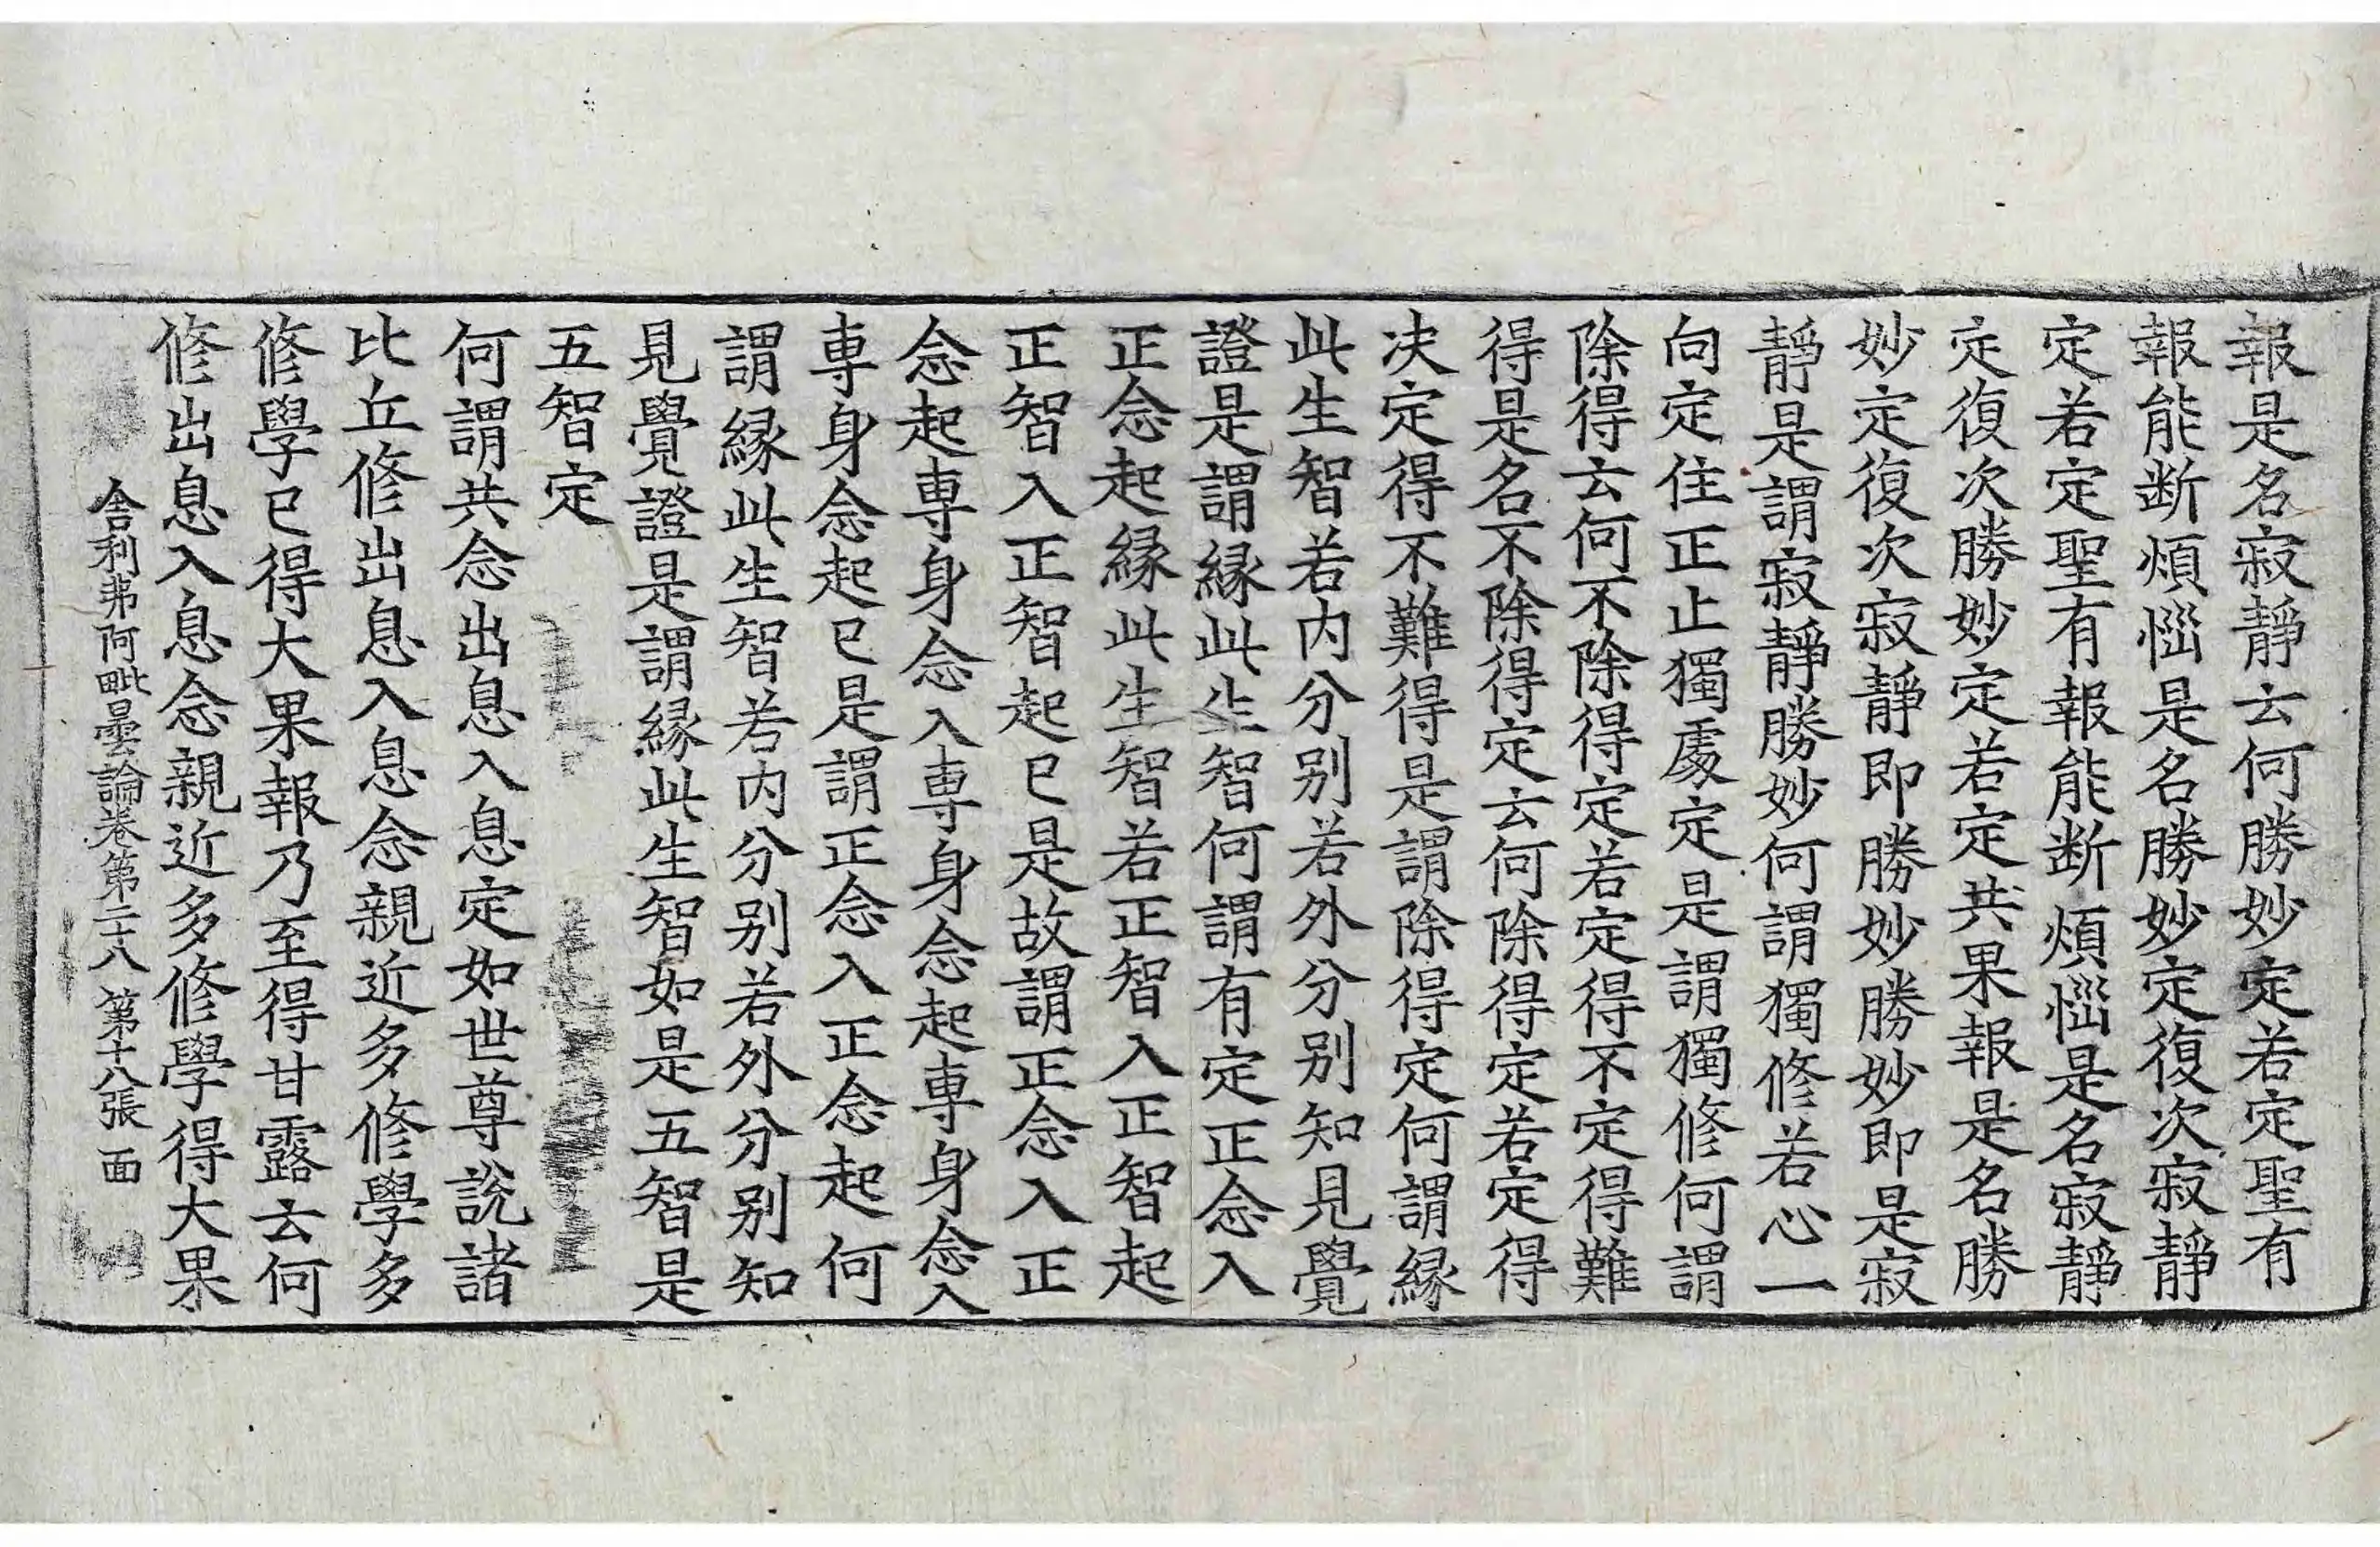 報是名寂靜云何勝妙定若定聖有
報能断煩惱是名勝妙定復次寂靜
定若定聖有報能断煩惱是名寂靜
定復次勝妙定若定共果報是名勝
妙定復次寂靜即勝妙勝妙即是寂
靜是謂寂靜勝妙何謂獨修若心一
向定住正止獨處定是謂獨修何謂
除得云何不除得定若定得不定得難
得是名不除得定云何除得定若定得
决定得不難得是謂除得定何謂縁
此生智若内分别若外分别知見覺
證是謂縁此生智何謂有定正念入
正念起縁此生智若正智入正智起
正智入正智起已是故謂正念入正
念起専身念入専身念起専身念入
専身念起已是謂正念入正念起何
謂縁此生智若内分别若外分别知
見覺證是謂縁此生智如是五智是
五智定
何謂共念出息入息定如世尊說諸
比丘修出息入息念親近多修學多
修學已得大果報乃至得甘露云何
修出息入息念親近多修學得大果
舎利弗阿毗曇論卷第二十八 第十八張 面